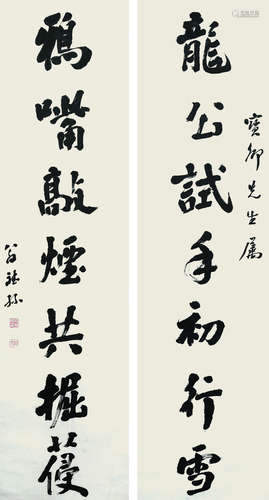 寶卿先生屬
龍公試手初行雪
鴉嘴敲煙共掘葠
翁斌孫